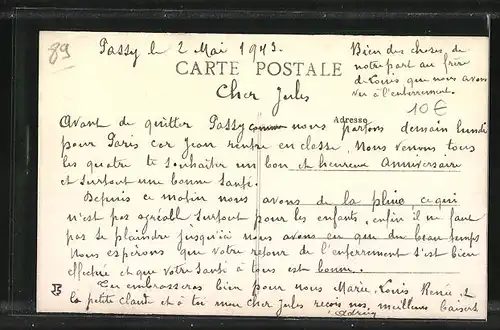 89
Passy le 2 Mai 1943.
Bien des choses de
notre part au frère
de Louis que nous avons
vu à l'enterrement.
CARTE POSTALE
10€
Cher Jules
Adresse
Avant de quitter Passy comme nous partons demain lundi
pour Paris car Jean rentre en classe, Nous venons tous
les quatre te souhaiter un bon et heureux anniversaire
et surtout une bonne santé.
Depuis ce matin nous avons de la pluie, ce qui
n'est pas agréable surtout pour les enfants, enfin il ne faut
pas se plaindre jusqu'ici nous avons eu que du beau temps
Nous espérons que votre retour de l'enterrement s'est bien
effectué et que votre santé à tous est bonne.
Tu embrasseras bien pour nous Marie, Louis Renée, et
la petite Claude et à toi mon cher Jules reçois nos meilleurs baisers